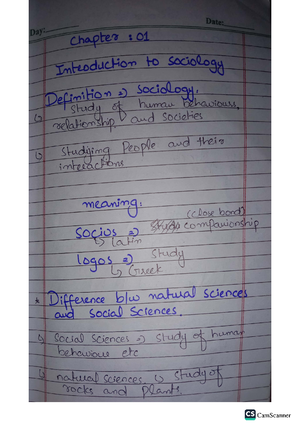 Day: Date:
Chapter : 01
Introduction to sociology
Definition => sociology.
study of human behaviour,
relationship, and societies
Studying People and their
interactions
meaning:
(close bond)
Socius => companionship
↳ Latin
logos => Study
↳ Greek
* Difference b/w natural sciences
and social sciences.
Social Sciences => study of human
behaviour etc
natural sciences ↳ study of
rocks and plants
CS CamScanner